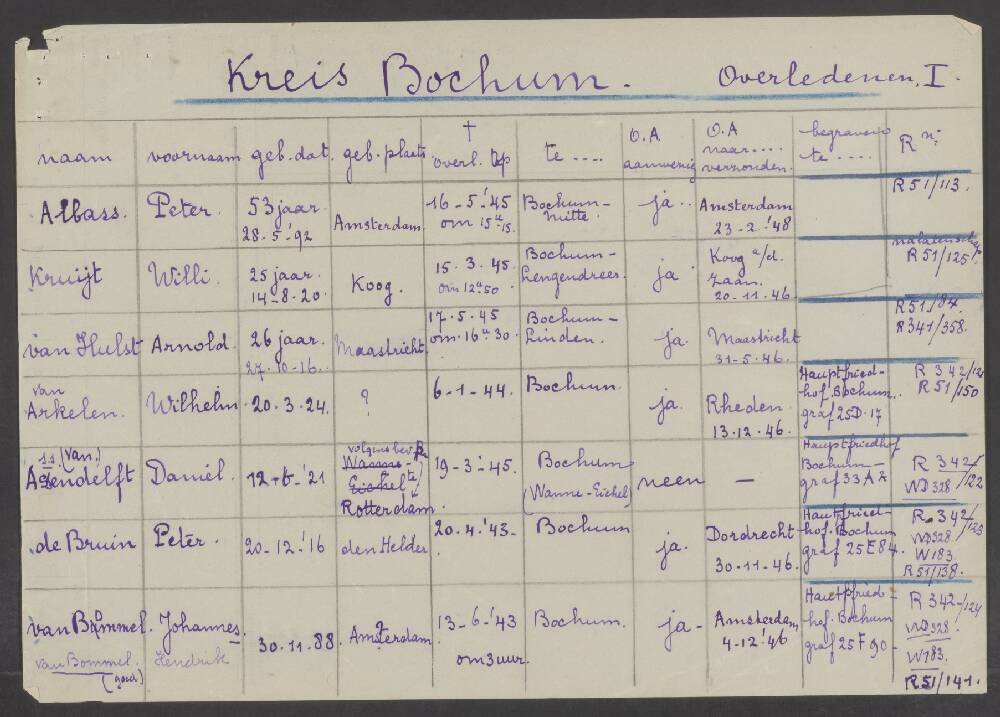 Kreis Bochum. Overledenen. I.
naam voornaam geb. dat. geb. plaats † overl. op te .... O.A aanwezig O.A naar .... verzonden. begraven te .... R nᵒ.
Albass. Peter. 53 jaar. 28-5-'92 Amsterdam 16-5-'45 om 15ᵘ15. Bochum-mitte. ja. Amsterdam 23-2-'48 R51/113.
Kruijt Willi. 25 jaar. 14-8-20. Koog. 15.3.45. om 12ᵘ50 Bochum-Lengendreer. ja Koog a/d. Zaan. 20-11-46. R51/125
van Hulst Arnold. 26 jaar. 27-10-16. Maastricht 17.5.45 om 16ᵘ30. Bochum-Linden. ja. Maastricht 31-5-46. R51/84. R341/358.
van Arkelen. Wilhelm. 20.3.24. ? 6-1-44. Bochum. ja. Rheden. 13.12.46. Hauptfriedhof. Bochum. graf 25D.17 R342/121 R51/150
(van.) Daniël. '21 Rotterdam. 19-3-'45. Bochum (Wanne-Eickel) neen — Hauptfriedhof Bochum-graf 33A R342/122 WD328
de Bruin Peter. 20-12-'16 den Helder 20.4.'43. Bochum ja. Dordrecht 30-11-46. Hauptfriedhof. Bochum graf 25E84. R.342/123 WD328. W183. R51/138.
van Bommel. Johannes 30.11.88. Amsterdam 13-6-'43 om 3 uur. Bochum. ja- Amsterdam 4-12-'46 Hauptfriedhof. Bochum graf 25F90- R342-/124 WD328. W183. R51/141.
van Bommel. (goed) Hendrik